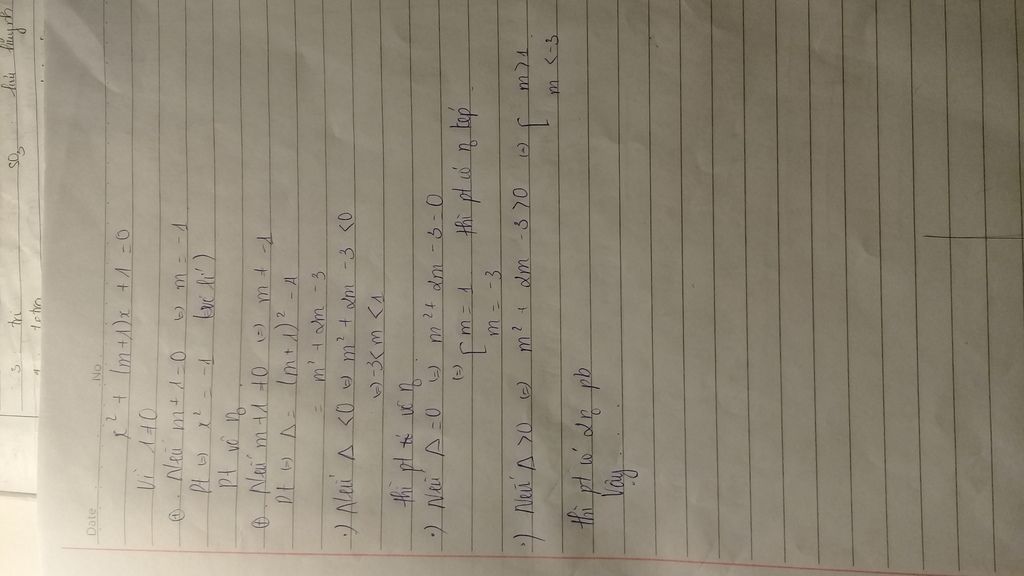 Date
No
x² + (m+1)x + 1 = 0
Vì 1≠0
⊕. Nếu m+1=0 (=) m = -1
Pt (=) x² = -1 (vô lí)
Pt vô n₀
⊕. Nếu m+1 ≠0 (=) m ≠ -1
Pt (=) Δ = (m+1)² - 4
= m² + 2m - 3
·) Nếu Δ <0 (=) m² + 2m - 3 <0
(=) -3<m<1
thì pt vô n₀
·) Nếu Δ =0 (=) m² + 2m - 3=0
(=) [ m = 1 thì pt có n₀ kép
m = -3
·) Nếu Δ >0 (=) m² + 2m - 3>0 (=) [ m>1
m < -3
thì pt có 2n₀ pb
Vậy . . .
3
SO₃